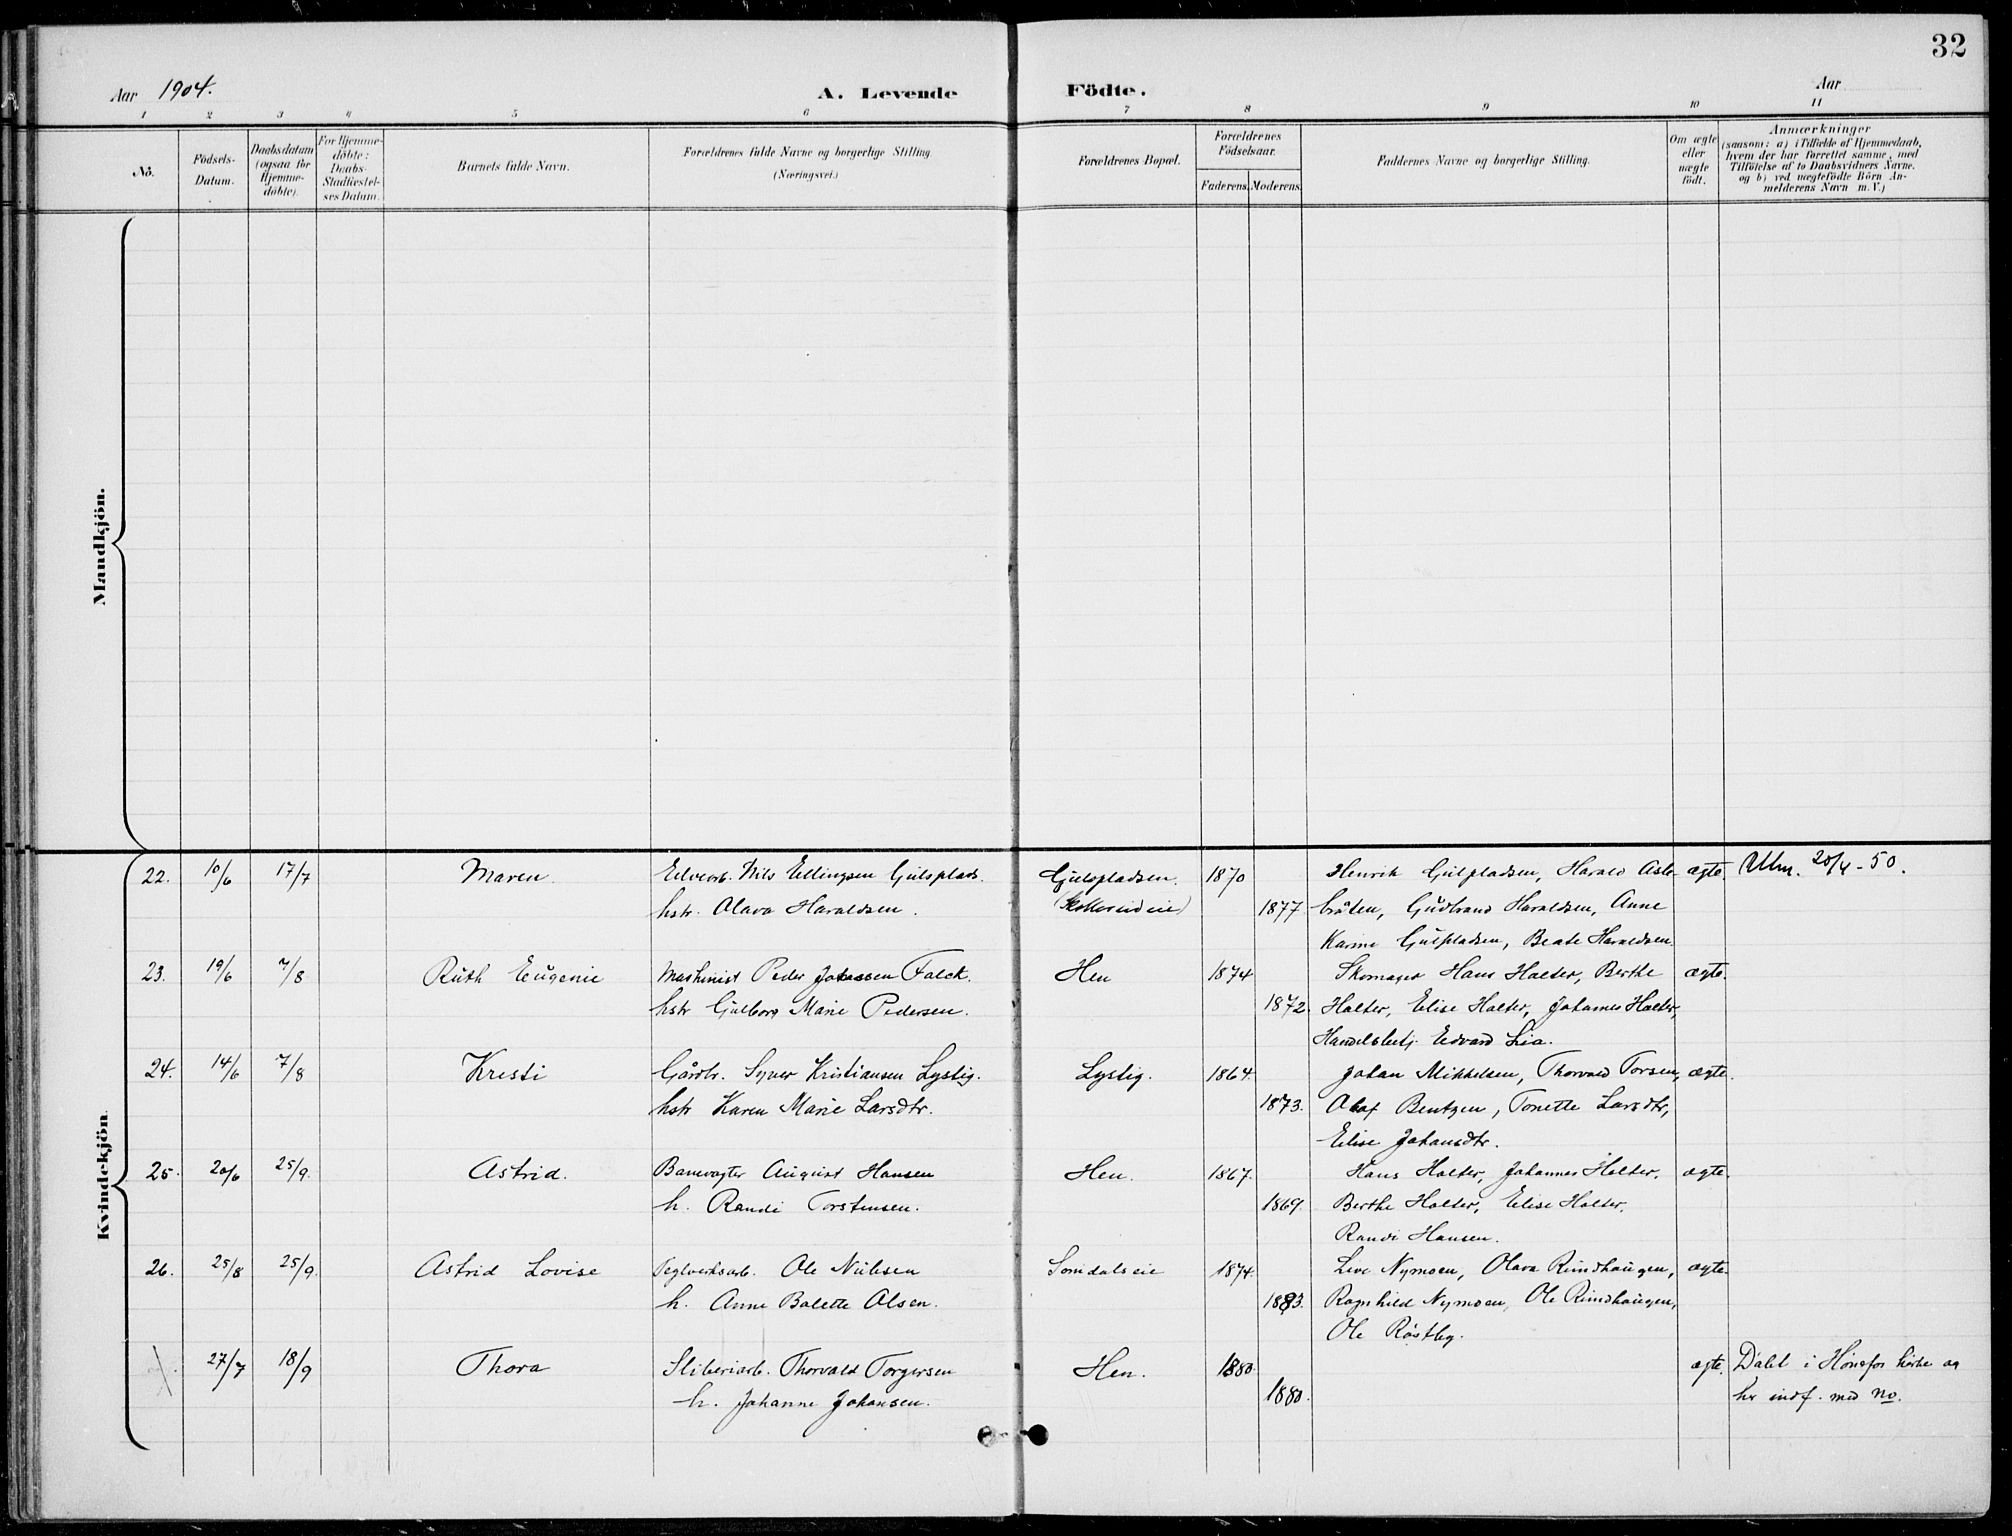 32
Aar 1904.
A. Levende Födte.
Aar
1 2 3 4 5 6 7 8 9 10 11
No.
Födsels-Datum.
Daabsdatum (ogsaa for Hjemme-döbte).
For Hjemme-döbte: Daabs-Stadfæstel-ses Datum.
Barnets fulde Navn.
Forældrenes fulde Navne og borgerlige Stilling (Næringsvei.)
Forældrenes Bopæl.
Forældrenes Födselsaar.
Faderens. Moderens.
Faddernes Navne og borgerlige Stilling.
Om ægte eller uægte födt.
Anmærkninger
(saasom: a) i Tilfælde af Hjemmedaab,
hvem der har forrettet samme, med
Tilföielse af to Daabsvidners Navne.
og b) ved uægtefödte Börn An-
melderens Navn m. V.)
Mandkjön.
Kvindekjön.
22. 10/6 17/7 Maren. Elvearb. Nils Ellingsen Gulsplads. Gulspladsen. 1870 Henrik Gulspladsen, Harald Asle- ægte. Utm. 20/4-50.
hstr. Olava Haraldsen. 1877 bråten, Gudbrand Haraldsen, Anne
Karine Gulspladsen, Beate Haraldsen
23. 19/6 7/8 Ruth Eugenie Maskinist Peder Johansen Falck. Hen 1874 Skomager Hans Halter, Berthe ægte.
hstr Gulborg Marie Pedersen. 1872. Halter, Elise Halter, Johannes Halter,
Handelsbetj. Edvard Lia.
24. 14/6 7/8 Kristi Gårdbr. Syver Kristiansen Lystig. Lystig. 1864. Johan Mikkelsen, Thorvald Torsen, ægte.
hstr Karen Marie Larsdtr. 1873. Olaf Bentzen, Tonette Larsdtr,
Elise Johansdtr.
25. 20/6 25/9. Astrid. Banevogter August Hansen Hen. 1867. Hans Halter, Johannes Halter. ægte.
h. Randi Torstensen. 1869. Berthe Halter, Elise Halter.
Randi Hansen.
26. 25/8 25/9. Astrid Lovise Teglverksarb. Ole Nilsen Somdalseie 1874. Live Nymoen, Olava Rundhaugen, ægte.
h. Anne Bolette Olsen. 1883. Ragnhild Nymoen, Ole Rundhaugen,
Ole Röstby.
27/7 18/9 Thora Sliberiarb. Thorvald Torgersen Hen. 1880 ægte. Döbt i Hönefos kirke og
h. Johanne Johansen. 1880. her indf. med no.